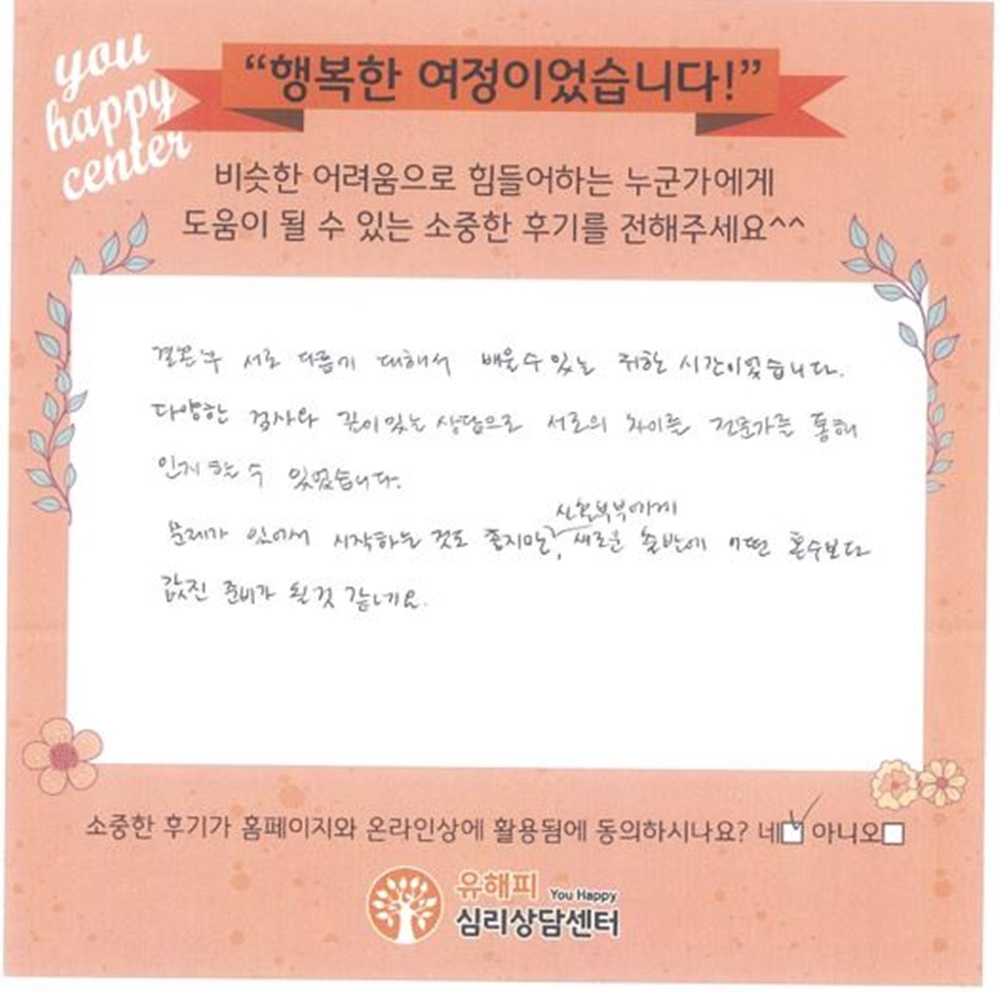 you
happy
center
“행복한 여정이었습니다!”
비슷한 어려움으로 힘들어하는 누군가에게
도움이 될 수 있는 소중한 후기를 전해주세요^^
결혼후 서로 다름에 대해서 배울 수 있는 귀한 시간이었습니다.
다양한 검사와 깊이있는 상담으로 서로의 차이를 전문가를 통해
인지 할 수 있었습니다.
신혼부부에게
문제가 있어서 시작하는 것도 좋지만, 새로운 출발에 어떤 혼수보다
값진 준비가 될것 같네요.
소중한 후기가 홈페이지와 온라인상에 활용됨에 동의하시나요? 네 아니오
유해피 You Happy
심리상담센터